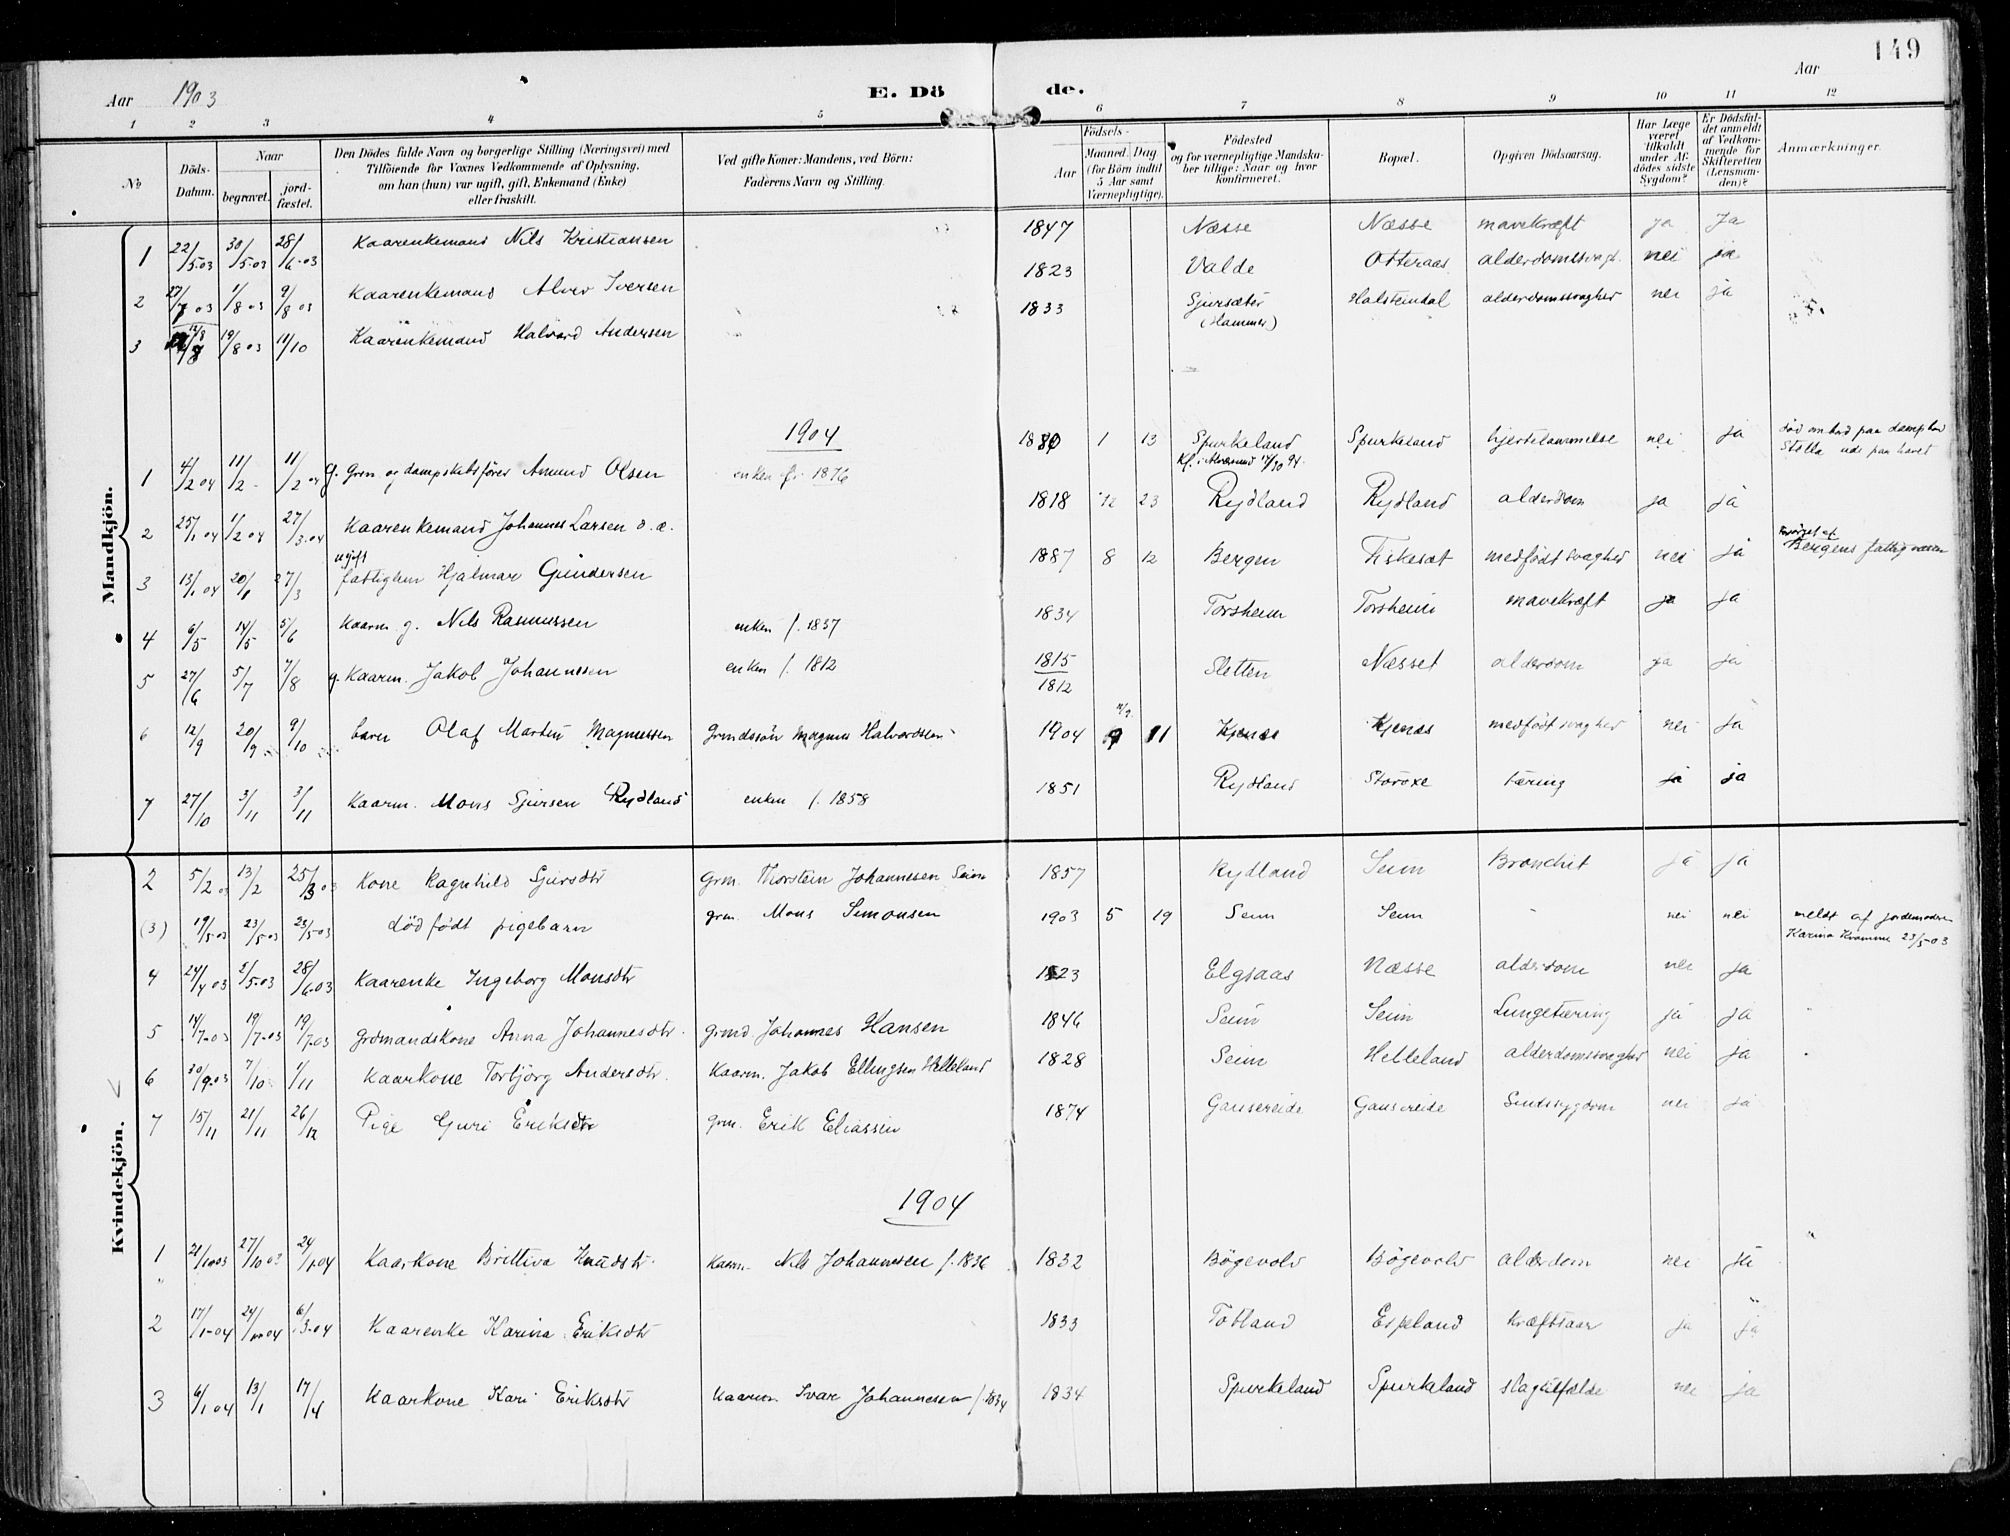 149
Aar 1903 E. Döde. Aar
1 2 3 4 5 6 7 8 9 10 11 12
No Döds-Datum. Naar begravet. jordfæstet. Den Dödes fulde Navn og borgerlige Stilling (Næringsvei) med Tilföiende for Voxnes Vedkommende af Oplysning, om han (hun) var ugift, gift, Enkemand (Enke) eller fraskilt. Ved gifte Koner: Mandens, ved Börn: Faderens Navn og Stilling. Födsels- Aar Maaned. Dag (for Börn indtil 5 Aar samt Værnepligtige). Födested og for værnepligtige Mandskaber tillige: Naar og hvor konfirmeret. Bopæl. Opgiven Dödsaarsag. Har Læge været tilkaldt under Afdödes sidste Sygdom? Er Dödsfaldet anmeldt af Vedkommende for Skifteretten (Lensmanden)? Anmærkninger.
Mandkjön.
1 22/5.03 30/5.03 28/6.03 Kaarenkemand Nils Kristiansen 1847 Næsse Næsse mavekræft ja Ja
2 27/7 03 1/8 03 9/8 03 Kaarenkemand Alver Iversen 1823 Valde Otteraas alderdomssvagh. nei ja
3 12/8 19/8 03 11/10 Kaarenkemand Halvard Andersen 1833 Sjursæter (Hammer) Halsteindal alderdomssvaghed nei ja
1904
1 4/2 04 11/2 11/2 04 g. Grm. og dampskibsfører Amund Olsen enken f. 1876 1880 1 13 Spurkeland Kf. i Alversund 14/10 94. Spurkeland hjertelammelse nei ja død ombord paa dampbaad Stella ude paa havet
2 25/1 04 1/2 04 27/3.04 Kaarenkemand Johannes Larsen d. æ. 1818 12 23 Rydland Rydland alderdom ja ja
3 13/1 04 20/1 27/3 ugift fattiglem Hjalmar Gundersen 1887 8 12 Bergen Fiskesæt medfødt svaghed nei ja forsørget af Bergens fattigvæsen
4 6/5 14/5 5/6 Kaarm. g. Nils Rasmussen enken f. 1837 1834 Torsheim Torsheim mavekræft ja ja
5 27/6 5/7 7/8 g. Kaarm. Jakob Johannessen enken f. 1812 1815 1812 Sletten Næsset alderdom ja ja
6 12/9 20/9 9/10 barn Olaf Martin Magnussen Grmdssøn Magnus Halvardsen 1904 9 11 Kjenæs Kjenæs medfødt svaghed nei ja
7 27/10 3/11 3/11 Kaarm. Mons Sjursen Rydland enken f. 1858 1851 Rydland Storoxe tæring ja ja
Kvindekjön.
2 5/2 03 13/2 25/3 03 Kone Ragnhild Sjursdtr Grm. Thorstein Johannesen Seim 1857 Rydland Seim Bronchit ja ja
(3) 19/5 03 23/5 03 23/5 03 død født pigebarn grm. Mons Simonsen 1903 5 19 Seim Seim - nei nei meldt af jordemoderen Karina Kvamme 23/5-03
4 24/4 03 2/5.03 28/6.03 Kaarenke Ingeborg Monsdtr 1823 Elgsaas Næsse alderdom nei ja
5 14/7.03 19/7.03 19/7.03 grdmandskone Anna Johannesdtr. grmd. Johannes Hansen 1846 Seim Seim Lungetæring ja ja
6 30/9.03 7/10 1/11 Kaarkone Torbjørg Andersdtr. Kaarm. Jakob Ellingsen Helleland 1828 Seim Helleland alderdomssvaghed nei ja
7 15/11 21/11 26/12 Pige Guri Eriksdtr grm. Erik Eliassen 1874 Gaustreide Gaustreide Sindssygdom nei ja
1904
1 21/10 03 27/10 03 24/1.04 Kaarkone Brittiva Knudsdtr. Kaarm. Nils Johannesen f. 1836 1832 Bøgevold Bøgevold alderdom nei ja
2 17/1-04 24/1 04 6/3-04 Kaarenke Karina Eriksdtr 1833 Totland Espeland Kræftsaar ja ja
3 6/1 04 13/1 17/4 Kaarkone Kari Eriksdtr Kaarm. Ivar Johannesen f. 1834 1834 Spurkeland Spurkeland slagtilfælde nei ja